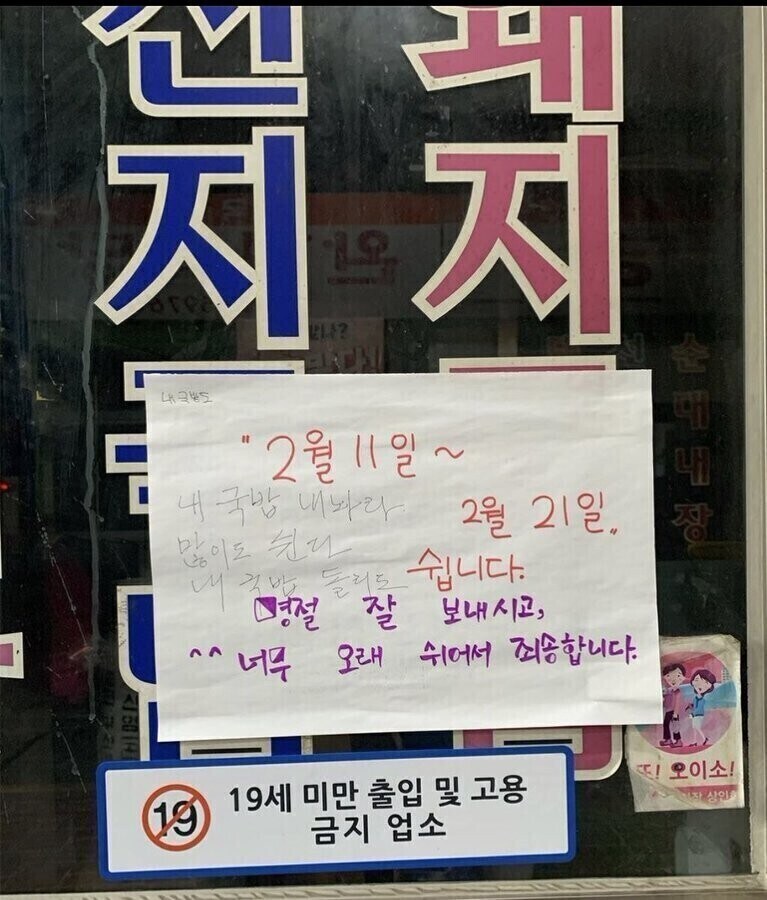 선 돼
지 지
국 국
순대내장
내 국밥도
" 2월 11일 ~
2월 21일 "
쉽니다.
내 국밥 내놔라
많이도 쉰다
내 국밥 돌려도
명절 잘 보내시고,
^^ 너무 오래 쉬어서 죄송합니다.
또! 오이소!
19
19세 미만 출입 및 고용
금지 업소